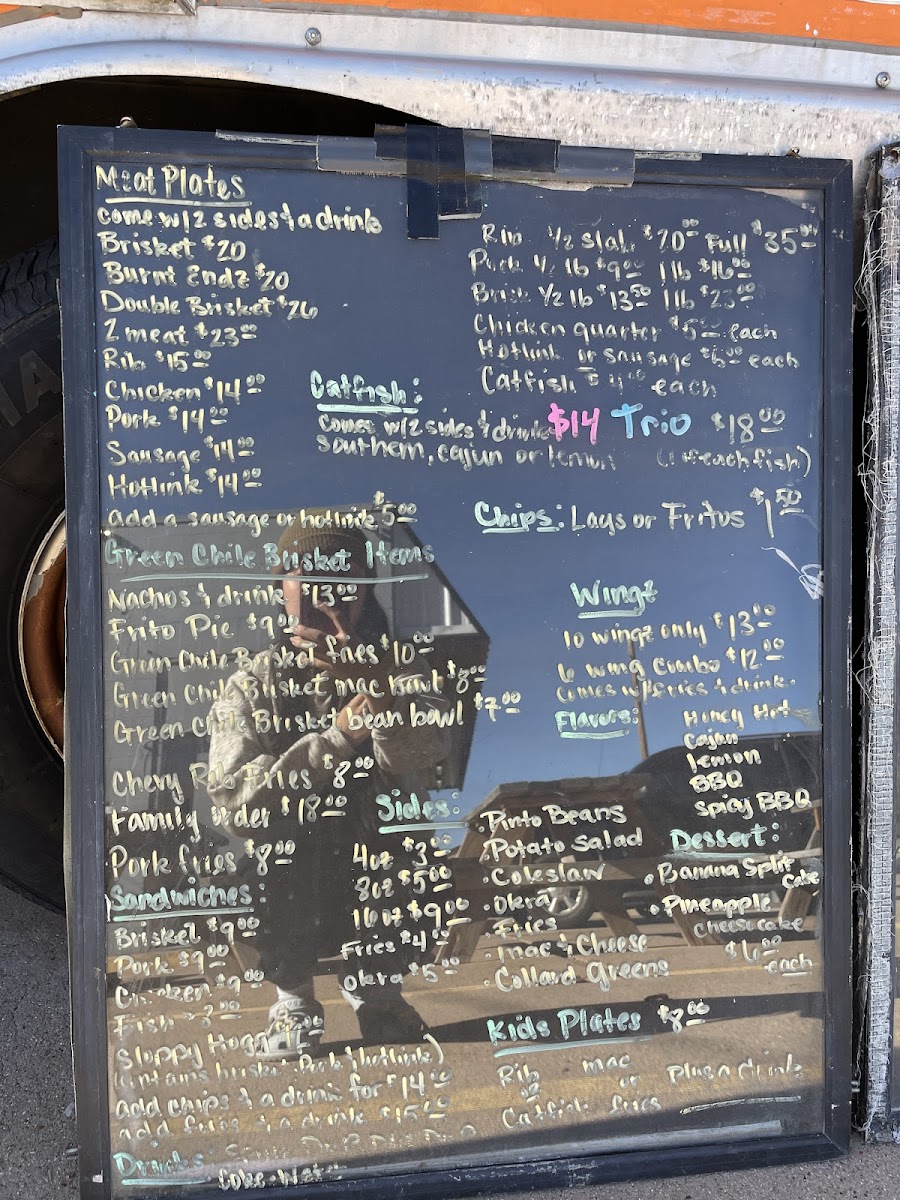 Meat Plates
come w/2 sides & a drink
Brisket $20
Burnt Endz $20
Double Brisket $26
2 meat $23.00
Rib $15.00
Chicken $14.00
Pork $14.00
Sausage $14.00
Hotlink $14.00
add a sausage or hotlink $5.00
Rib 1/2 slab $20.00 Full $35.00
Pork 1/2 lb $9.00 1 lb $16.00
Brisk 1/2 lb $13.50 1 lb $25.00
Chicken quarter $5.00 each
Hotlink or sausage $5.00 each
Catfish $4.00 each
Catfish:
comes w/2 sides & drink $14 Trio $18.00
southern, cajun or lemon (1 of each fish)
Chips: Lays or Fritos $1.50
Green Chile Brisket Items
Nachos & drink $13.00
Frito Pie $9.00
Green Chile Brisket fries $10.00
Green Chile Brisket mac bowl $8.00
Green Chile Brisket bean bowl $7.00
Chevy Rib Fries $8.00
Family order $18.00
Pork fries $8.00
Wingz
10 wingz only $13.00
6 wing Combo $12.00
comes w/fries & drink.
Flavors:
Honey Hot
Cajun
lemon
BBQ
Spicy BBQ
Sides:
4oz $3.00
8oz $5.00
16oz $9.00
Fries $4.00
Okra $5.00
• Pinto Beans
• Potato Salad
• Coleslaw
• Okra
• Fries
• mac & Cheese
• Collard Greens
Dessert:
• Banana Split Cake
• Pineapple Cheesecake
$6.00 each
Sandwiches:
Brisket $9.00
Pork $9.00
Chicken $9.00
Fish
Sloppy Hogg
(contains brisket, Pork & hotlink)
add chips & a drink for $14.00
add fries & a drink $15.00
Kids Plates $8.00
Rib mac
or or Plus a drink
Catfish fries
Drinks:
Coke